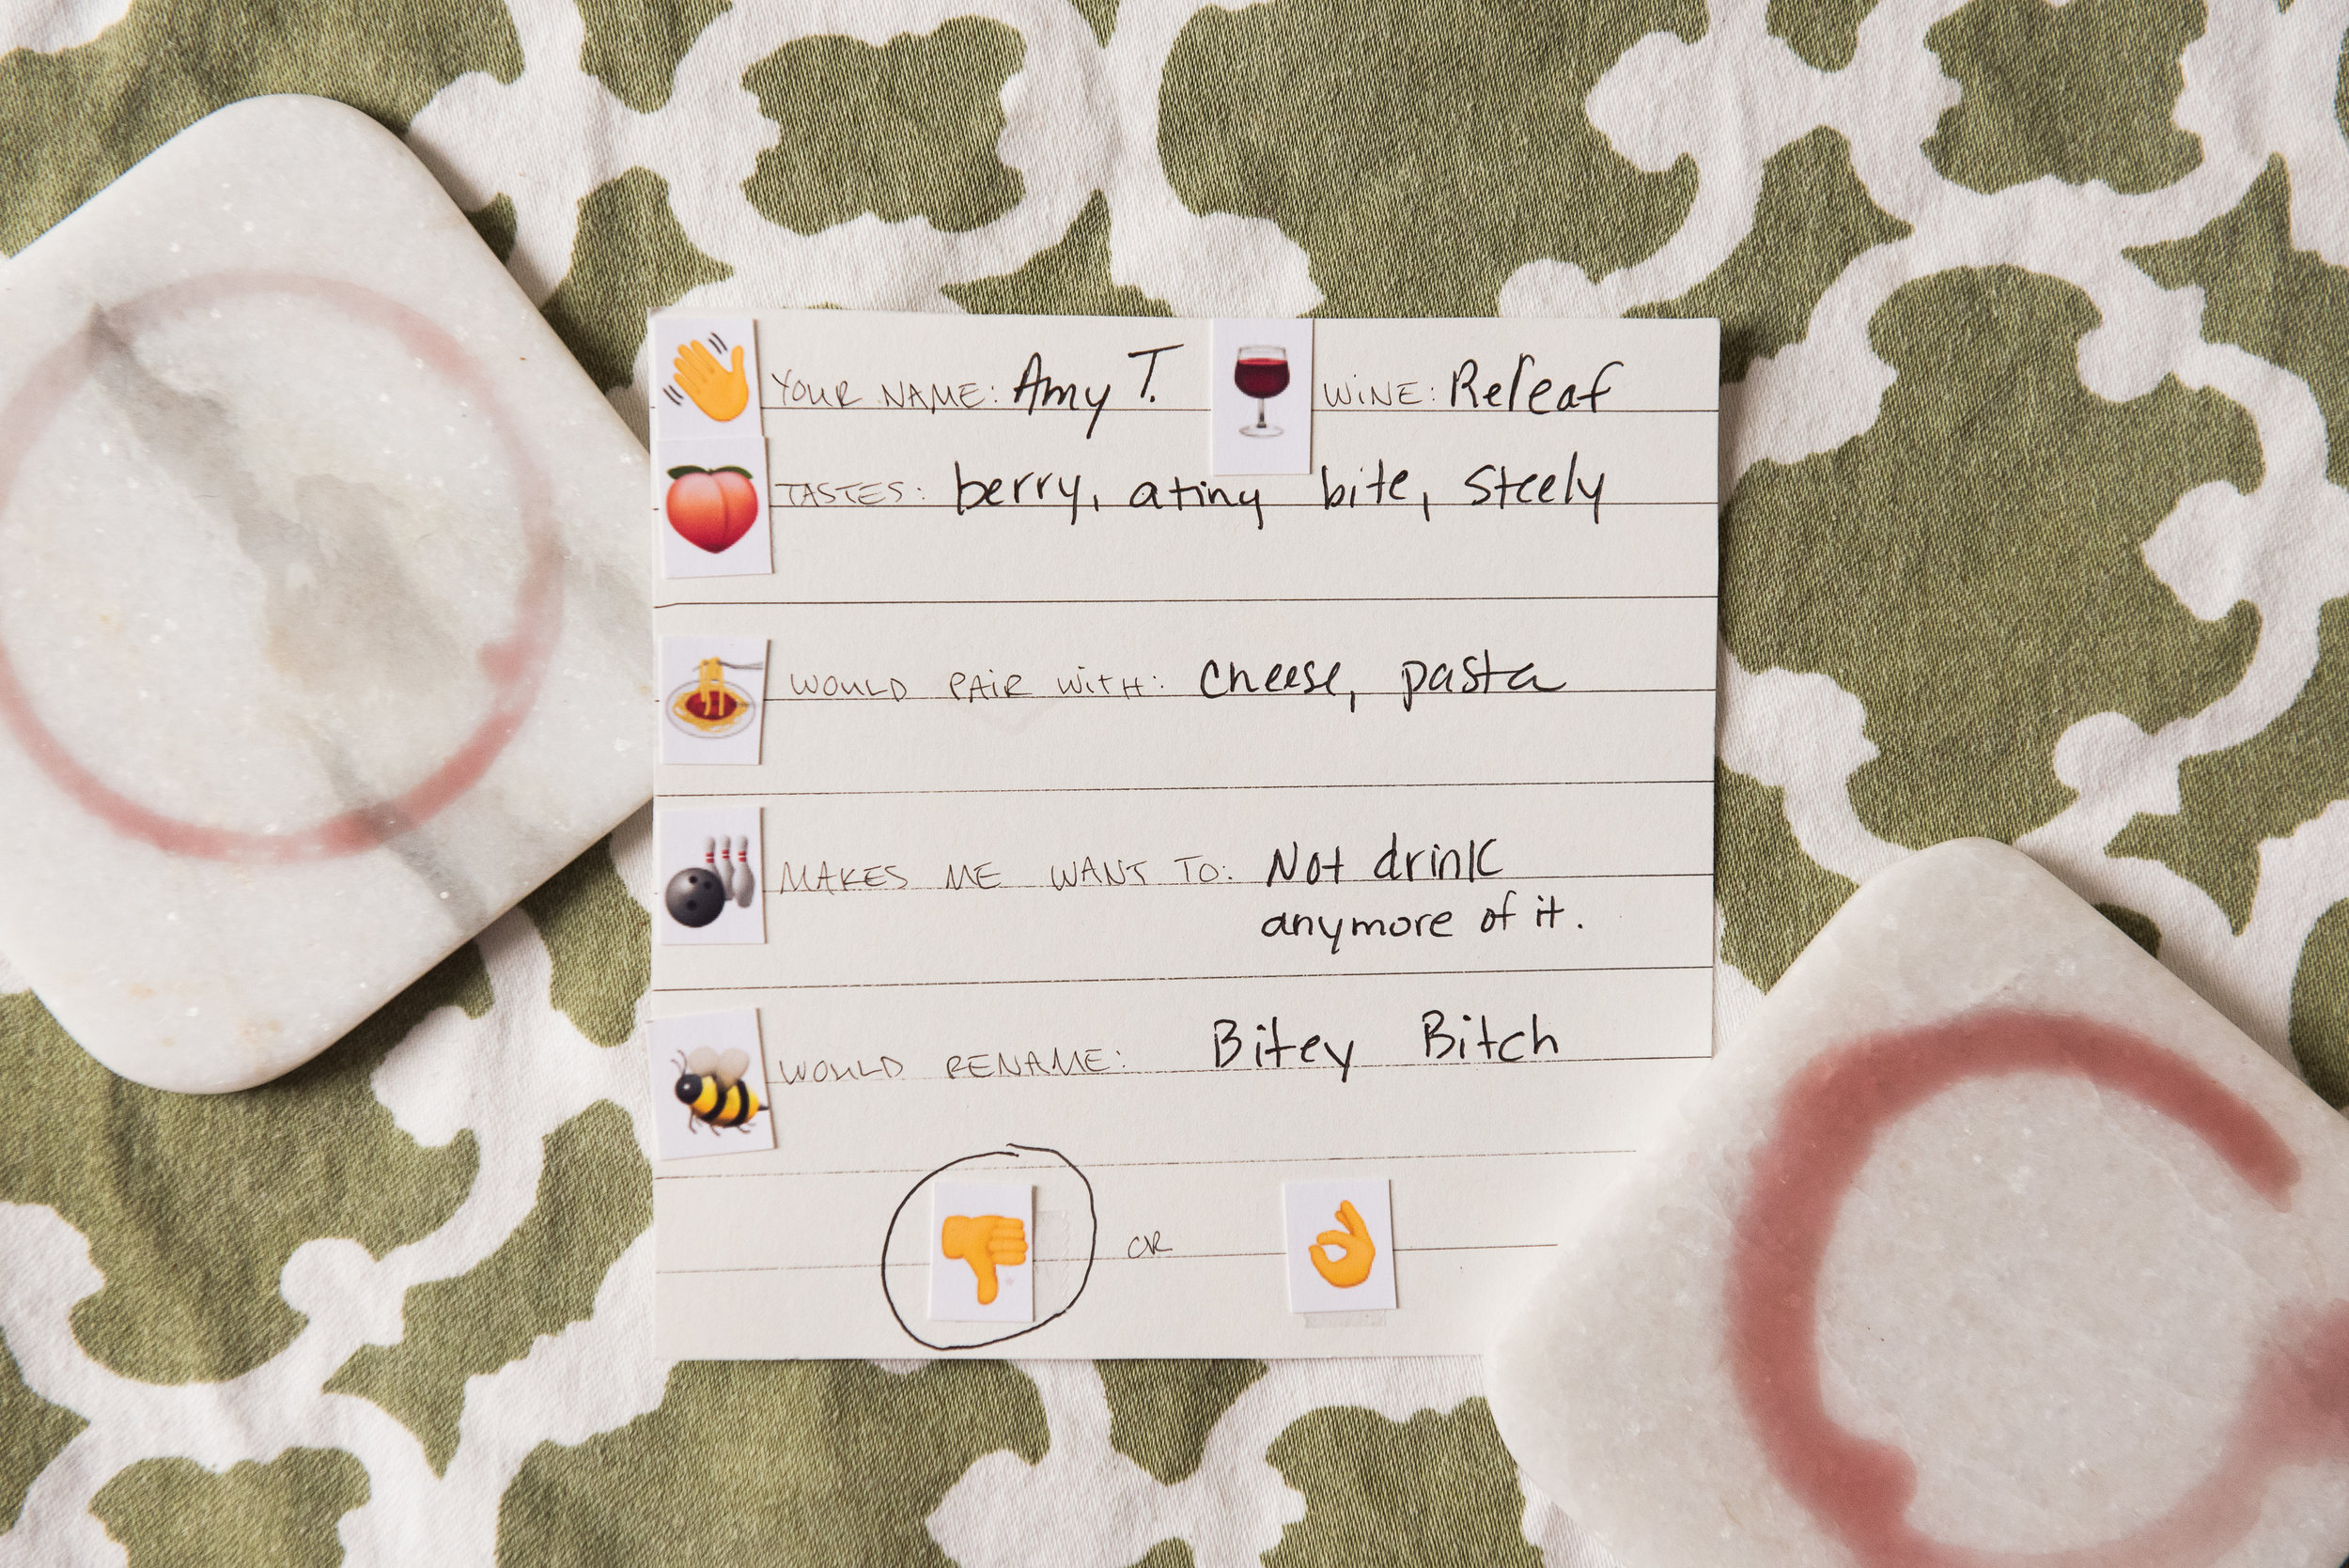 YOUR NAME: Amy T. WINE: Releaf
TASTES: berry, a tiny bite, steely
WOULD PAIR WITH: cheese, pasta
MAKES ME WANT TO: Not drink
anymore of it.
WOULD RENAME: Bitey Bitch
OR